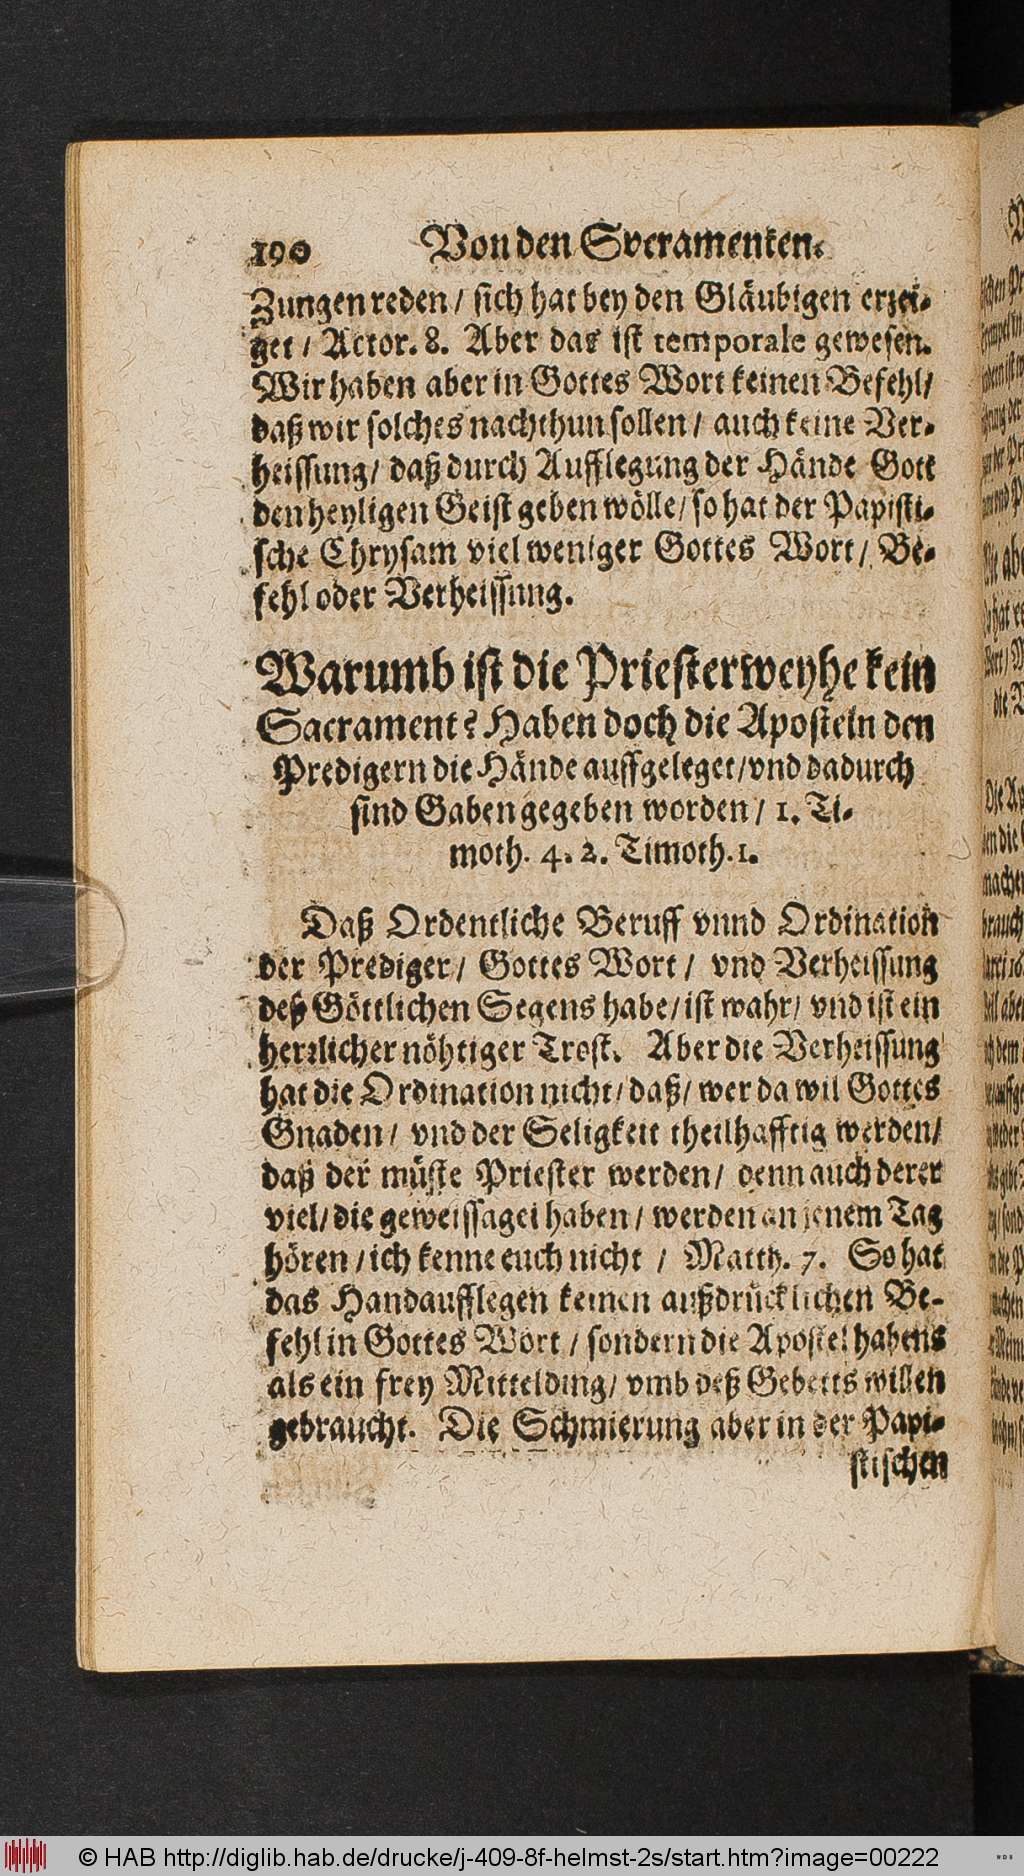 190 Von den Svcramenten.
Zungen reden / sich hat bey den Gläubigen erzei-
get / Actor. 8. Aber das ist temporale gewesen.
Wir haben aber in Gottes Wort keinen Befehl /
daß wir solches nachthun sollen / auch keine Ver-
heissung / daß durch Aufflegung der Hände Gott
den heyligen Geist geben wölle / so hat der Papisti-
sche Chrysam viel weniger Gottes Wort / Be-
fehl oder Verheissung.
Warumb ist die Priesterweyhe kein
Sacrament? Haben doch die Aposteln den
Predigern die Hände auffgeleget / vnd dadurch
sind Gaben gegeben worden / 1. Ti-
moth. 4. 2. Timoth. 1.
Daß Ordentliche Beruff vnnd Ordination
der Prediger / Gottes Wort / vnd Verheissung
deß Göttlichen Segens habe / ist wahr / vnd ist ein
herrlicher nöhtiger Trost. Aber die Verheissung
hat die Ordination nicht / daß / wer da wil Gottes
Gnaden / vnd der Seligkeit theilhafftig werden /
daß der müste Priester werden / denn auch derer
viel / die geweissaget haben / werden an jenem Tag
hören / ich kenne euch nicht / Matth. 7. So hat
das Handaufflegen keinen außdrücklichen Be-
fehl in Gottes Wort / sondern die Apostel habens
als ein frey Mittelding / vmb deß Gebetts willen
gebraucht. Die Schmierung aber in der Papi-
stischen
© HAB http://diglib.hab.de/drucke/j-409-8f-helmst-2s/start.htm?image=00222